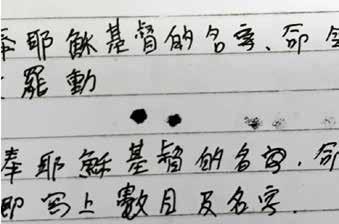 奉耶穌基督的名字、命令
罷動
奉耶穌基督的名字、命
即寫上數目及名字.